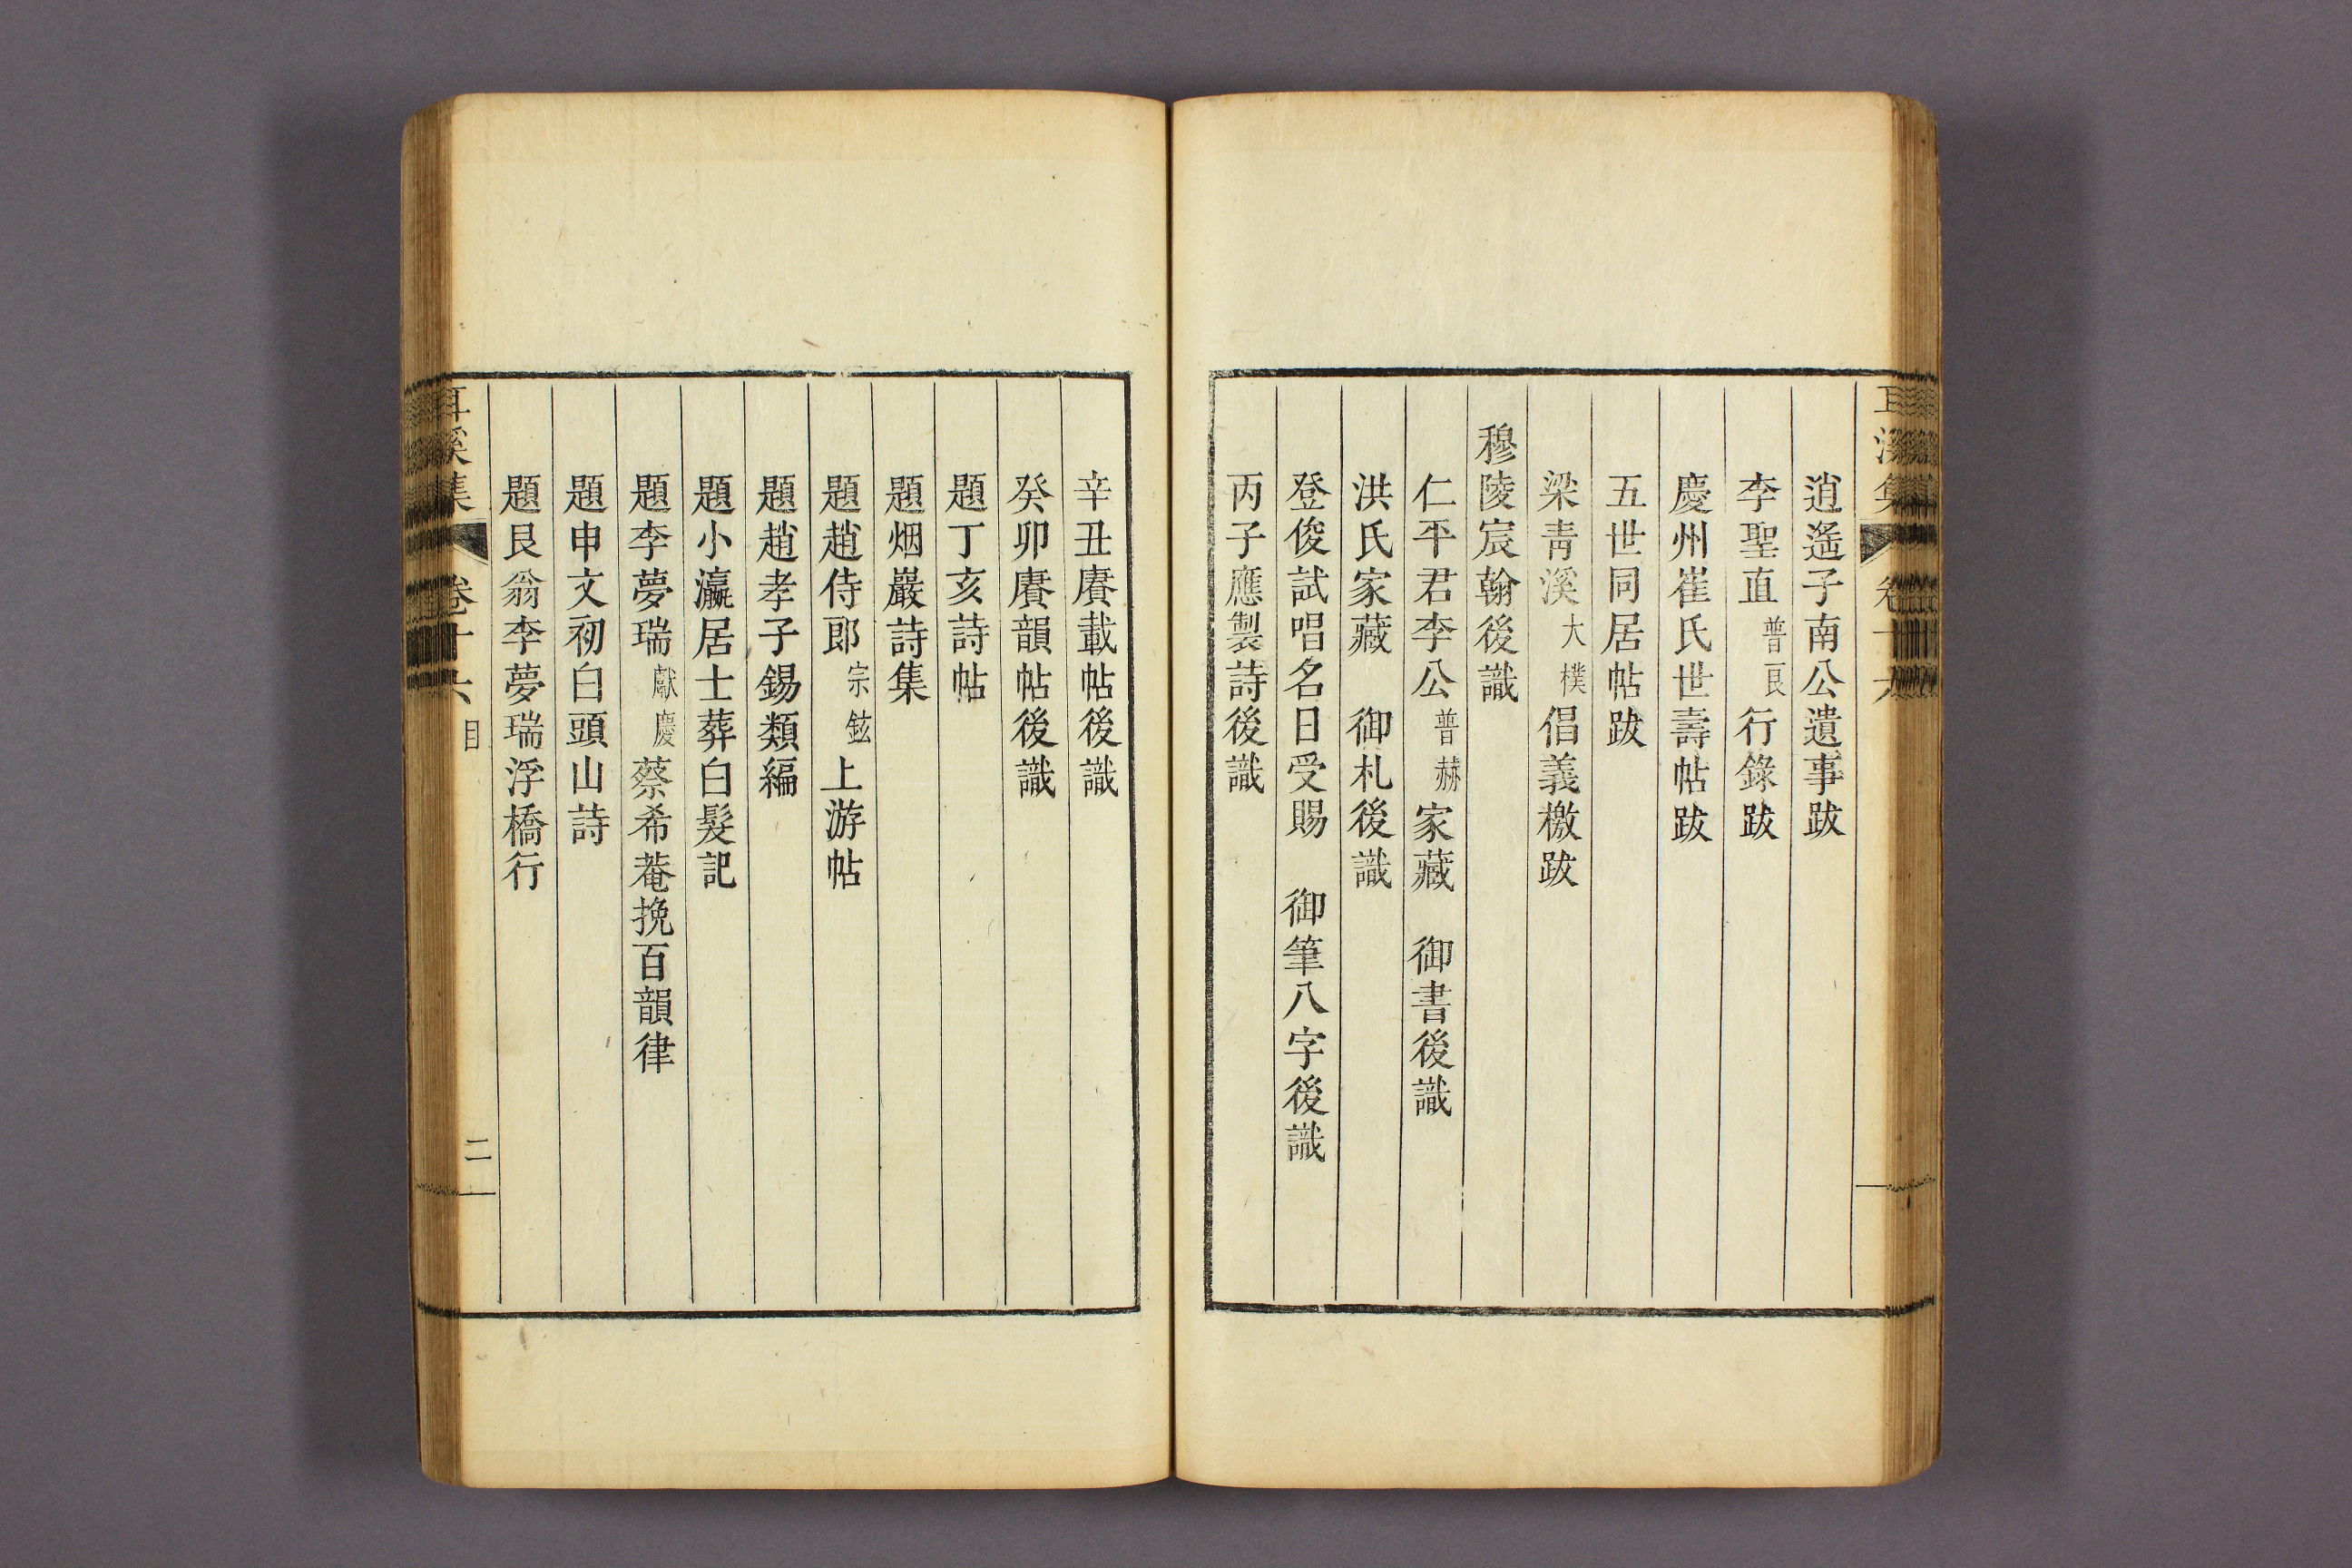 逍遙子南公遺事跋
李聖直普艮行錄跋
慶州崔氏世壽帖跋
五世同居帖跋
梁靑溪大樸倡義檄跋
穆陵宸翰後識
仁平君李公普赫家藏 御書後識
洪氏家藏 御札後識
登俊試唱名日受賜 御筆八字後識
丙子應製詩後識
辛丑賡載帖後識
癸卯賡韻帖後識
題丁亥詩帖
題烟巖詩集
題趙侍郎宗鉉上游帖
題趙孝子錫類編
題小瀛居士葬白髮記
題李夢瑞獻慶蔡希菴挽百韻律
題申文初白頭山詩
題艮翁李夢瑞浮橋行
耳溪集 卷十六 目 二